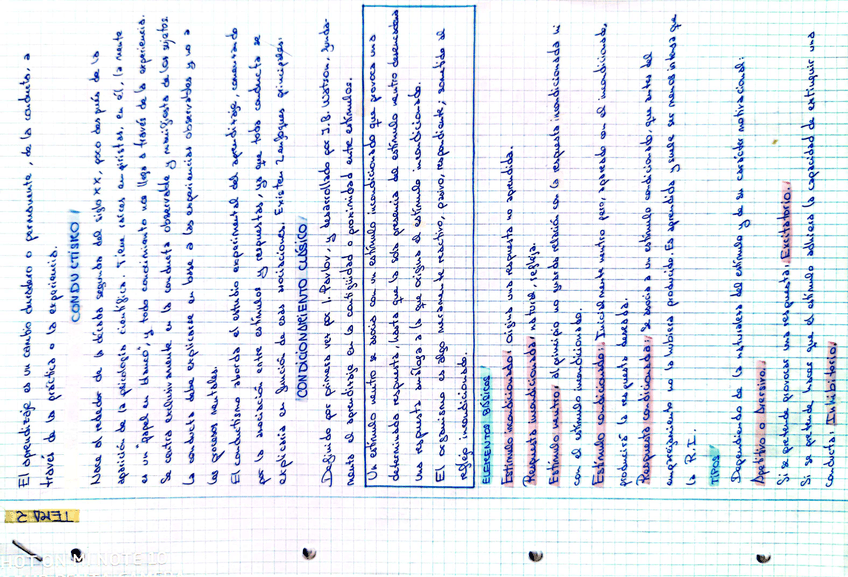 TEMA 2
El aprendizaje es un cambio duradero o permanente, de la conducta, a
través de la práctica o la experiencia.
CONDUCTISMO
Nace al rededor de la década segunda del siglo XX, poco después de la
aparición de la psicología científica. Tiene raíces empiristas, en él, la mente
es un "papel en blanco", y todo conocimiento nos llega a través de la experiencia.
Se centra exclusivamente en la conducta observable y manifiesta de los sujetos.
La conducta debe explicarse en base a las experiencias observables y no a
los procesos mentales.
El conductismo aborda el estudio experimental del aprendizaje, comenzando
por la asociación entre estímulos y respuestas, ya que toda conducta se
explicaría en función de esas asociaciones. Existen 2 enfoques principales:
CONDICIONAMIENTO CLÁSICO
Definido por primera vez por I. Pavlov, y desarrollado por J.B. Watson, funda-
menta el aprendizaje en la contigüidad o proximidad entre estímulos.
Un estímulo neutro se asocia con un estímulo incondicionado que provoca una
determinada respuesta, hasta que la sola presencia del estímulo neutro desencadena
una respuesta análoga a la que origina el estímulo incondicionado.
El organismo es algo meramente reactivo, pasivo, respondiente; sometido al
reflejo incondicionado.
ELEMENTOS BÁSICOS
Estímulo incondicionado: origina una respuesta no aprendida.
Respuesta incondicionada: natural, refleja.
Estímulo neutro: al principio no guarda relación con la respuesta incondicionada ni
con el estímulo incondicionado.
Estímulo condicionado: Inicialmente neutro pero, apareado con el incondicionado,
producirá la respuesta deseada.
Respuesta condicionada: Se asocia a un estímulo condicionado, que antes del
emparejamiento no la hubiera producido. Es aprendida y suele ser menos intensa que
la R.I.
TIPOS
Dependiendo de la naturaleza del estímulo y de su carácter motivacional:
Apetitivo o Aversivo.
Si se pretende provocar una respuesta: Excitatorio.
Si se pretende hacer que el estímulo adquiera la capacidad de extinguir una
conducta: Inhibitorio.
SHOT ON MI NOTE 10